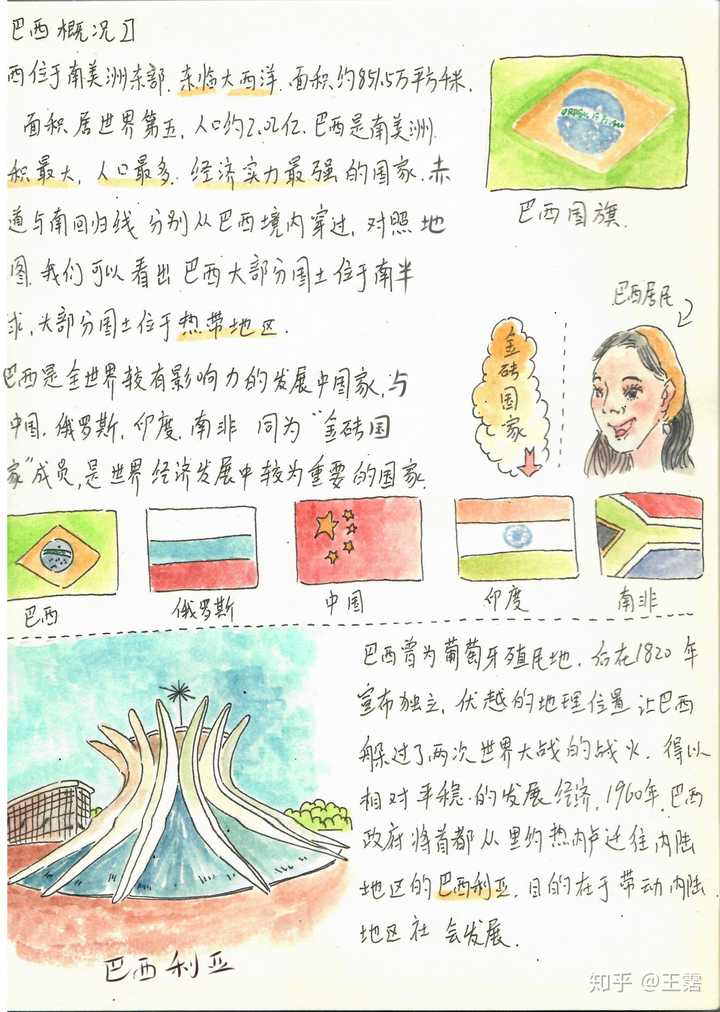 巴西概况】
西位于南美洲东部,东临大西洋,面积约851.5万平方千米,
面积居世界第五,人口约2.02亿.巴西是南美洲
积最大,人口最多,经济实力最强的国家,赤
道与南回归线分别从巴西境内穿过,对照地
图,我们可以看出巴西大部分国土位于南半
球,大部分国土位于热带地区.
巴西国旗.
巴西居民
金砖国家
巴西是全世界较有影响力的发展中国家,与
中国,俄罗斯,印度,南非 同为“金砖国
家”成员,是世界经济发展中较为重要的国家.
巴西
俄罗斯
中国
印度
南非
巴西曾为葡萄牙殖民地,后在1820年
宣布独立,优越的地理位置让巴西
躲过了两次世界大战的战火,得以
相对平稳的发展经济,1960年,巴西
政府将首都从里约热内卢迁往内陆
地区的巴西利亚,目的在于带动内陆
地区社会发展.
巴西利亚
知乎 @王霑